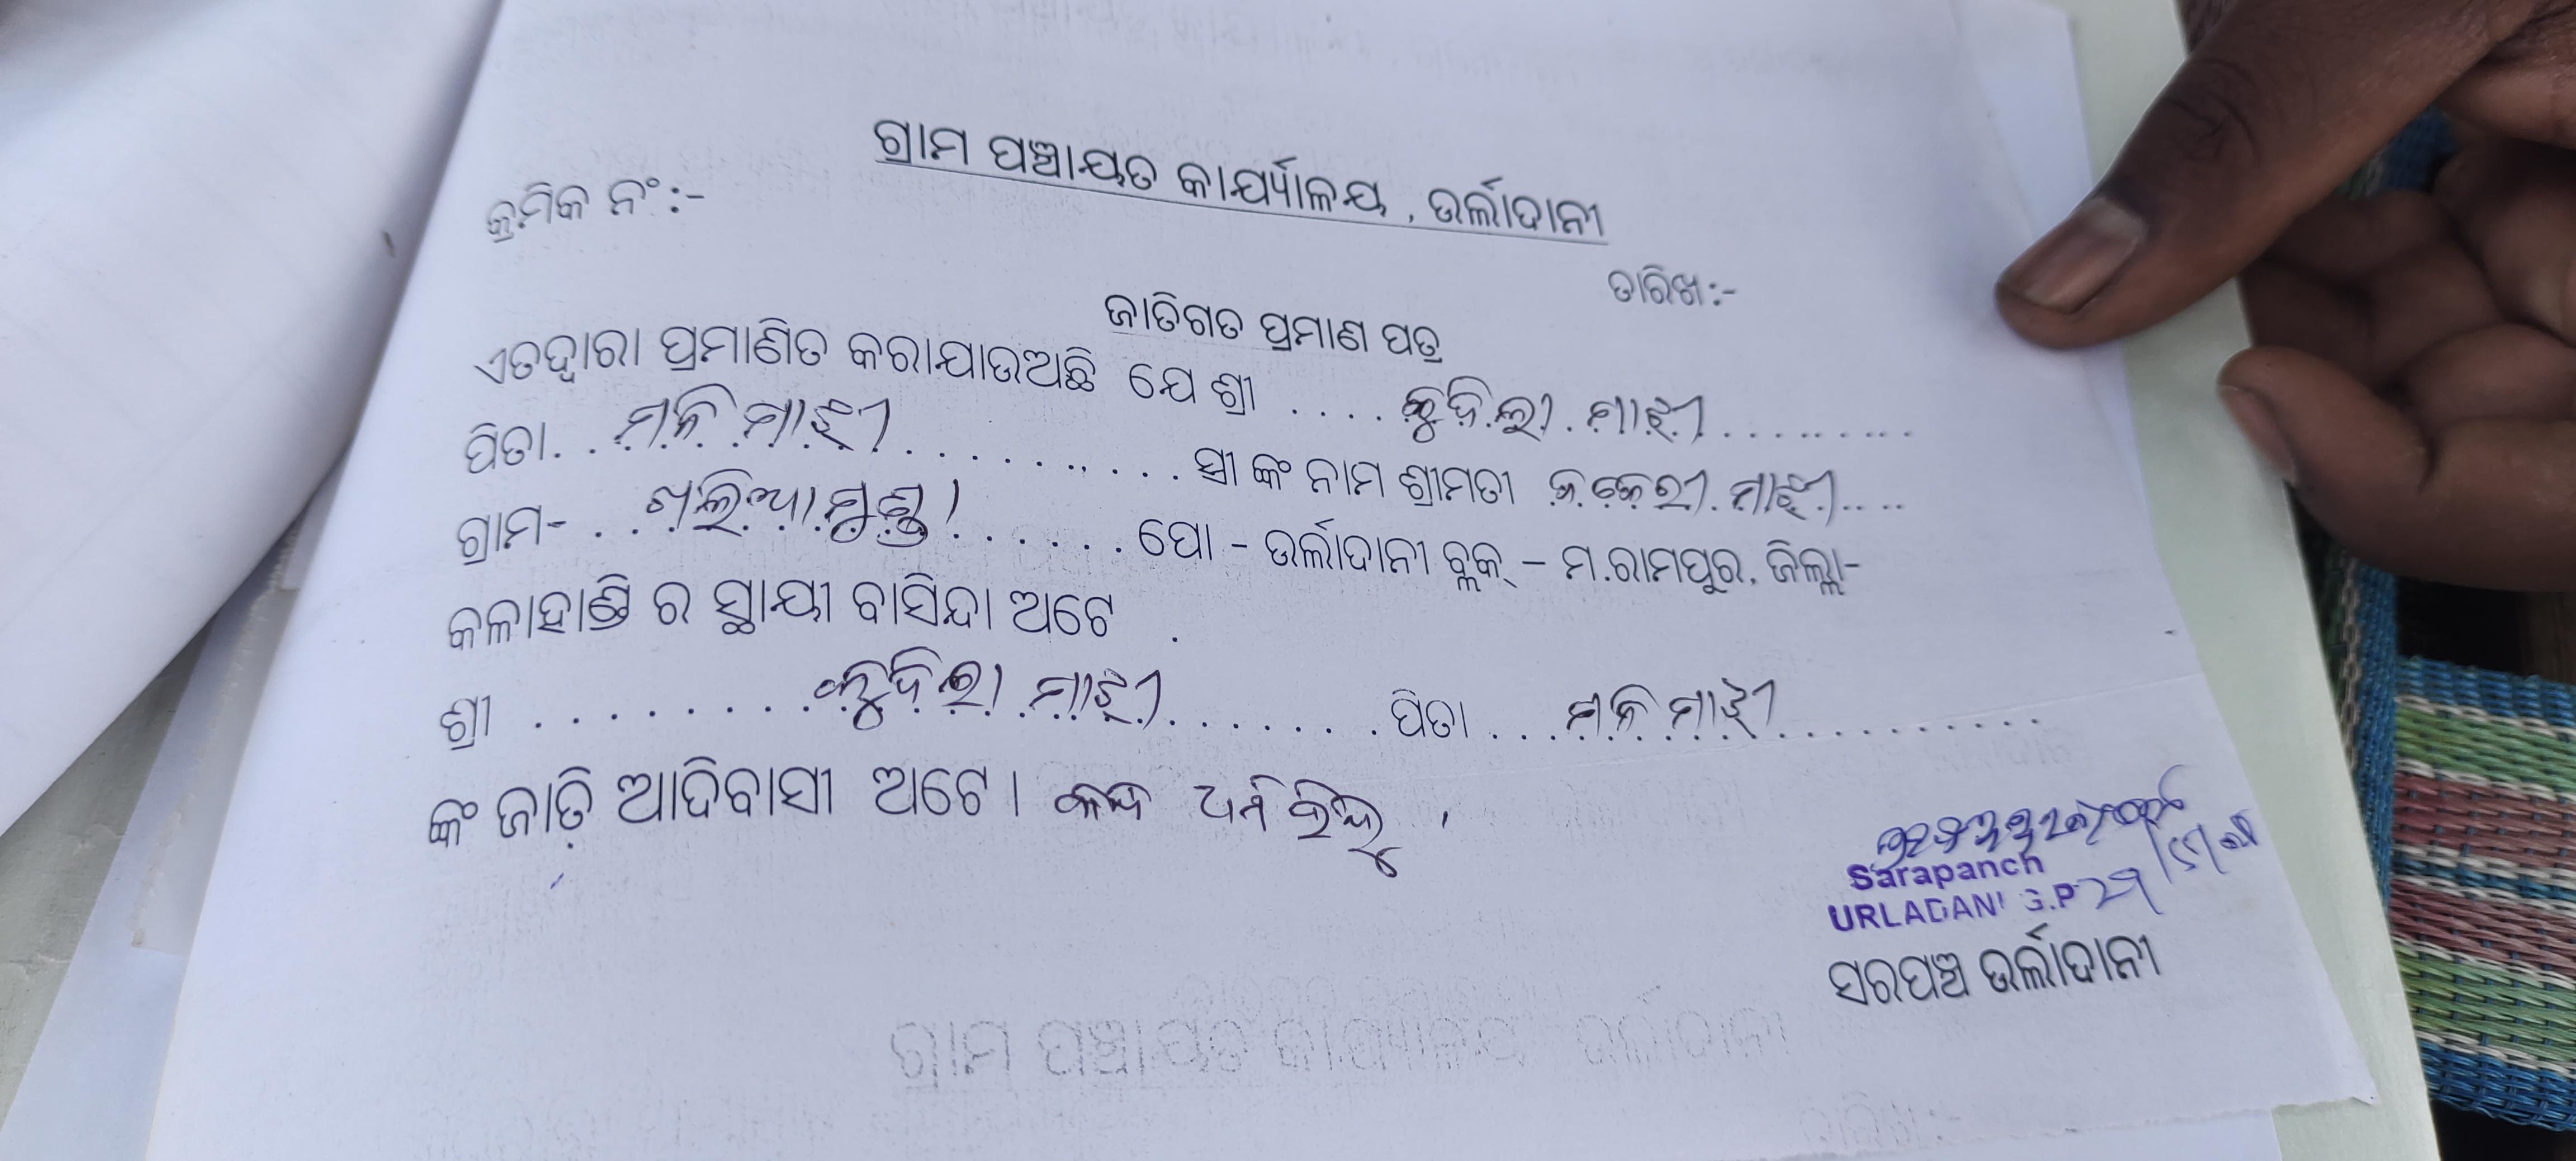 ଗ୍ରାମ ପଞ୍ଚାୟତ କାର୍ଯ୍ୟାଳୟ , ଉର୍ଲାଦାନୀ
କ୍ରମିକ ନଂ :-
ତାରିଖ :-
ଜାତିଗତ ପ୍ରମାଣ ପତ୍ର
ଏତଦ୍ୱାରା ପ୍ରମାଣିତ କରାଯାଉଅଛି ଯେ ଶ୍ରୀ .... କୁଦିଲା ମାଝୀ ..........
ପିତା. . ମକି ମାଝୀ .......... ସ୍ତ୍ରୀ ଙ୍କ ନାମ ଶ୍ରୀମତୀ ମାଝୀ....
ଗ୍ରାମ- . . ଖଲିଆମୁଣ୍ଡା ...... ପୋ - ଉର୍ଲାଦାନୀ ବ୍ଲକ୍ – ମ.ରାମପୁର, ଜିଲ୍ଲା-
କଳାହାଣ୍ଡି ର ସ୍ଥାୟୀ ବାସିନ୍ଦା ଅଟେ .
ଶ୍ରୀ ......... କୁଦିଲା ମାଝୀ ...... ପିତା ... ମକି ମାଝୀ ..........
ଙ୍କ ଜାତି ଆଦିବାସୀ ଅଟେ । କନ୍ଧ ଧର୍ମ ହିନ୍ଦୁ ,
Sarapanch
URLADANI G.P
ସରପଞ୍ଚ ଉର୍ଲାଦାନୀ